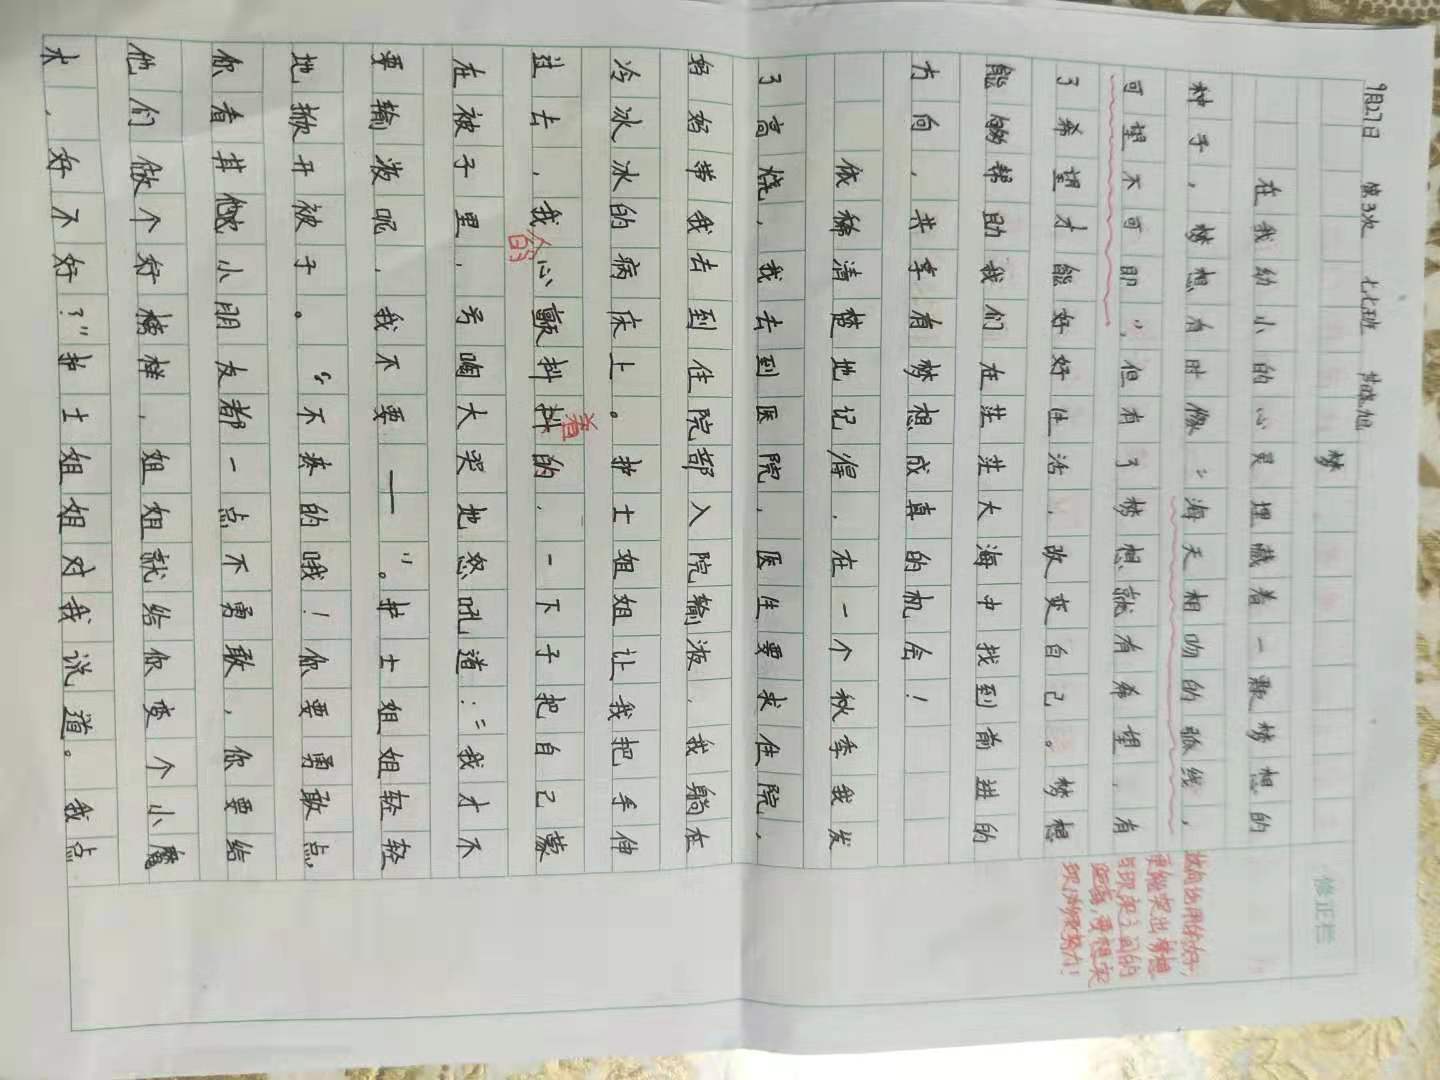 9月27日 第3次 七七班
梦
在我幼小的心灵埋藏着一颗梦想的
种子，梦想有时像“海天相吻的弧线，
可望不可即”，但有了梦想就有希望，有
了希望才能好好生活，改变自己。梦想
能够帮助我们在茫茫大海中找到前进的
方向，共享有梦想成真的机会！
依稀清楚地记得，在一个秋季我发
了高烧，我去到医院，医生要求住院，
妈妈带我去到住院部入院输液，我躺在
冷冰冰的病床上。护士姐姐让我把手伸
过去，我心颤抖抖的，一下子把自己蒙
的
着
在被子里，号啕大哭地怒吼道：“我才不
要输液呢，我不要——”。护士姐姐轻轻
地掀开被子。“不疼的哦！你要勇敢点
你看其他小朋友都一点不勇敢，你要给
他们做个好榜样，姐姐就给你变个小魔
术，好不好？”护士姐姐对我说道。我点
修正栏
更能突出梦想
与现实之间的
距离，要想实
现必须要努力！